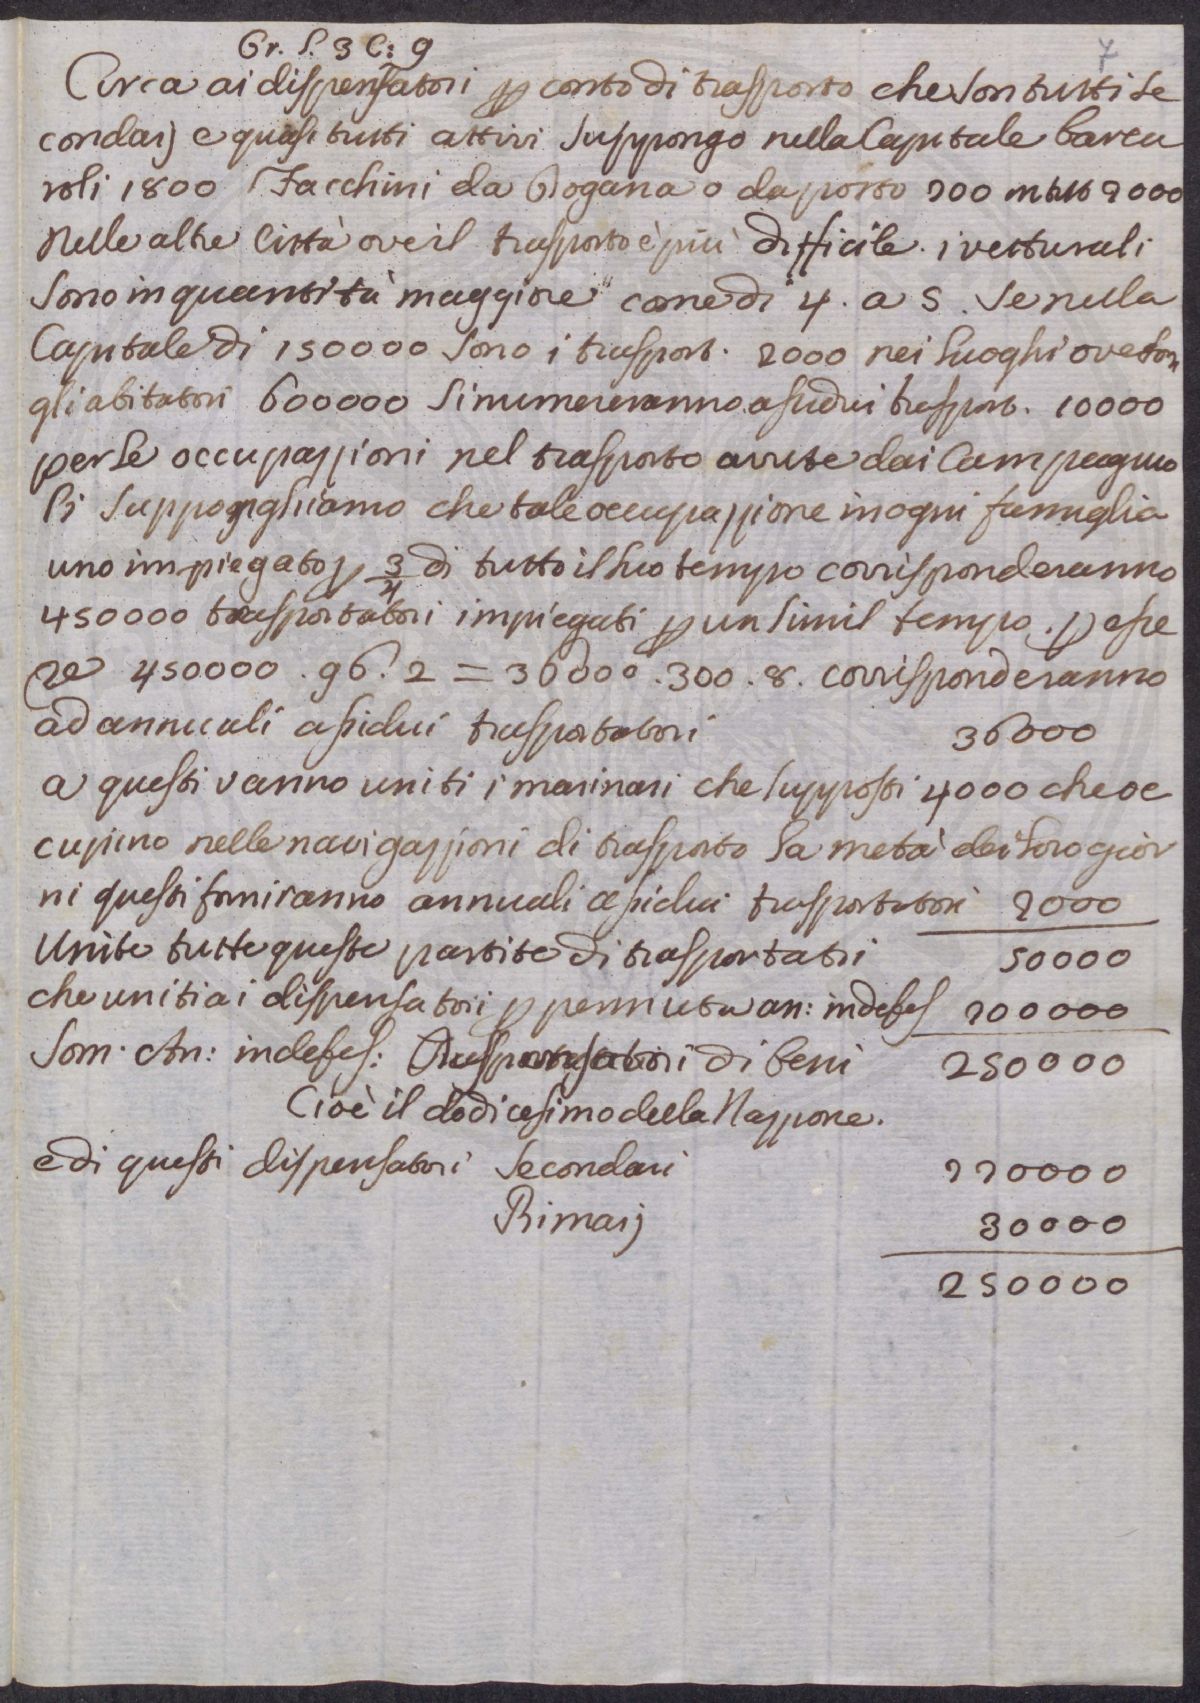 Gr. S. 3 C: 9
7
Circa ai dispensatori p conto di trasporto che son tutti se
condarj e quasi tutti attivi suppongo nella Capitale barca
roli 1800 Facchini da Dogana o da porto 200 in tutt 2000
Nelle altre Città ove il trasporto è più difficile i vetturali
sono in quantità maggiore come di 4. a 5. Se nella
Capitale di 150000 sono i trasport. 2000 nei luoghi ove son
gli abitatori 600000 si numereranno assidui trasport. 10000
per le occupazzioni nel trasporto avute dai Campagnuo
li supponghiamo che tale occupazzione in ogni famiglia
uno impiegato p 3/4 di tutto il suo tempo corrisponderanno
450000 trasportatori impiegati p un simil tempo. p esse
re 450000 . 96. 2 = 36000 . 300 . 8. corrisponderanno
ad annuali assidui trasportatori 36000
a questi vanno uniti i marinari che suppposti 4000 che oc
cupino nelle navigazzioni di trasporto la metà dei loro gior
ni questi forniranno annuali assidui trasportatori 2000
Unite tutte queste partite di trasportatri 50000
che uniti ai dispensatori p permuta an: indefes 200000
Som. An: indefes: di beni 250000
Cioè il dodicesimo della Nazzione.
e di questi dispensatori Secondari 220000
Primarj 30000
250000